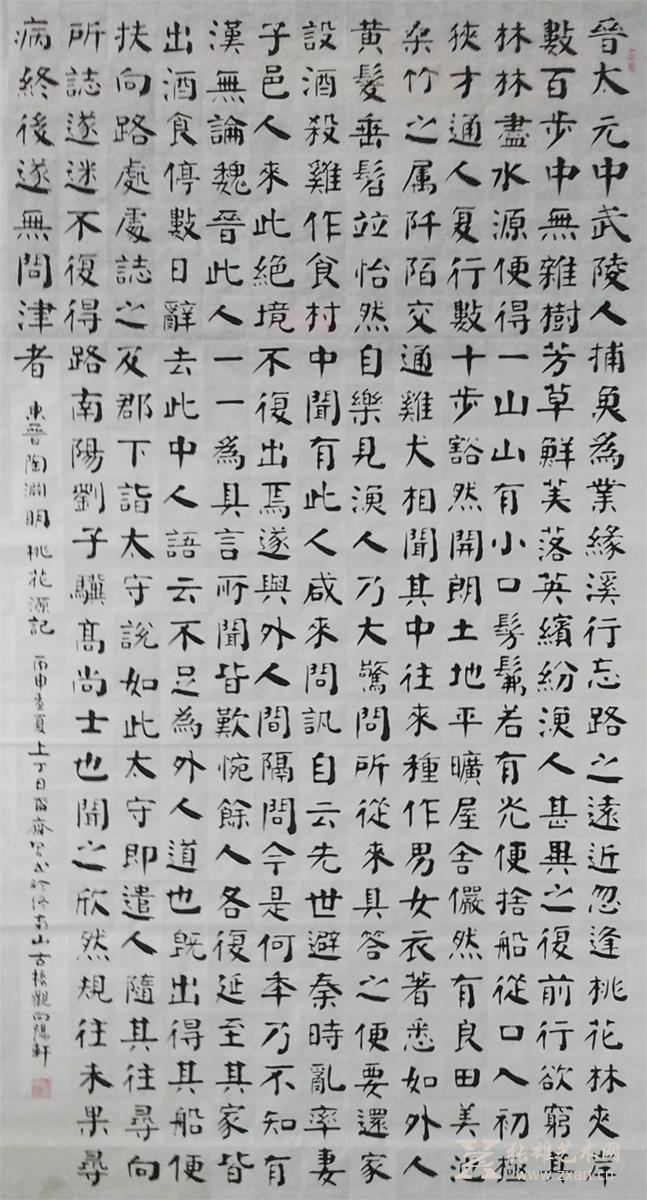 晉太元中武陵人捕魚為業緣溪行忘路之遠近忽逢桃花林夾岸
數百步中無雜樹芳草鮮美落英繽紛漁人甚異之復前行欲窮其
林林盡水源便得一山山有小口髣髴若有光便捨船從口入初極
狹才通人复行數十步豁然開朗土地平曠屋舍儼然有良田美池
桑竹之属阡陌交通雞犬相聞其中往來種作男女衣著悉如外人
黃髮垂髫竝怡然自樂見漁人乃大驚問所從來具答之便要還家
設酒殺雞作食村中聞有此人咸來問訊自云先世避秦時亂率妻
子邑人來此絕境不復出焉遂與外人間隔問今是何年乃不知有
漢無論魏晉此人一一為具言所聞皆歎惋餘人各復延至其家皆
出酒食停數日辭去此中人語云不足為外人道也既出得其船便
扶向路處處誌之及郡下詣太守說如此太守即遣人隨其往尋向
所誌遂迷不復得路南陽劉子驥高尚士也聞之欣然規往未果尋
病終後遂無問津者
東晉陶淵明桃花源記 丙申孟夏上丁日 齋 於終南山古樓觀向陽軒
张雄艺术网
www.zxart.cn